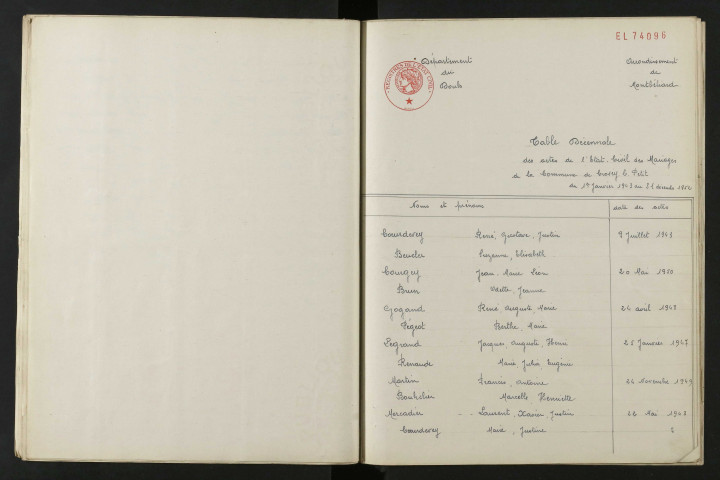 EL 74096
Département
du
Doubs
Arrondissement
de
Montbéliard
REGISTRES DE L'ETAT CIVIL
Table Décennale
des actes de l'Etat-Civil des Mariages
de la Commune de Crosey le Petit
du 1er Janvier 1943 au 31 décembre 1952
Noms et prénoms
date des actes
Courdavey René, Gustave, Justin 9 Juillet 1948
Suzanne, Elisabeth
Jean Marie Léon 20 Mai 1950
Odette, Jeanne
Gogand René Auguste, Marie 24 avril 1948
Pégeot Berthe, Marie
Legrand Jacques, Auguste, Henri 25 Janvier 1947
Renaude Marie, Julie, Eugénie
Martin Francis, Antoine 24 novembre 1949
Bouhélier Marcelle Henriette
Mercadier Laurent, Xavier, Justin 22 Mai 1948
Courdavey Marie, Justine